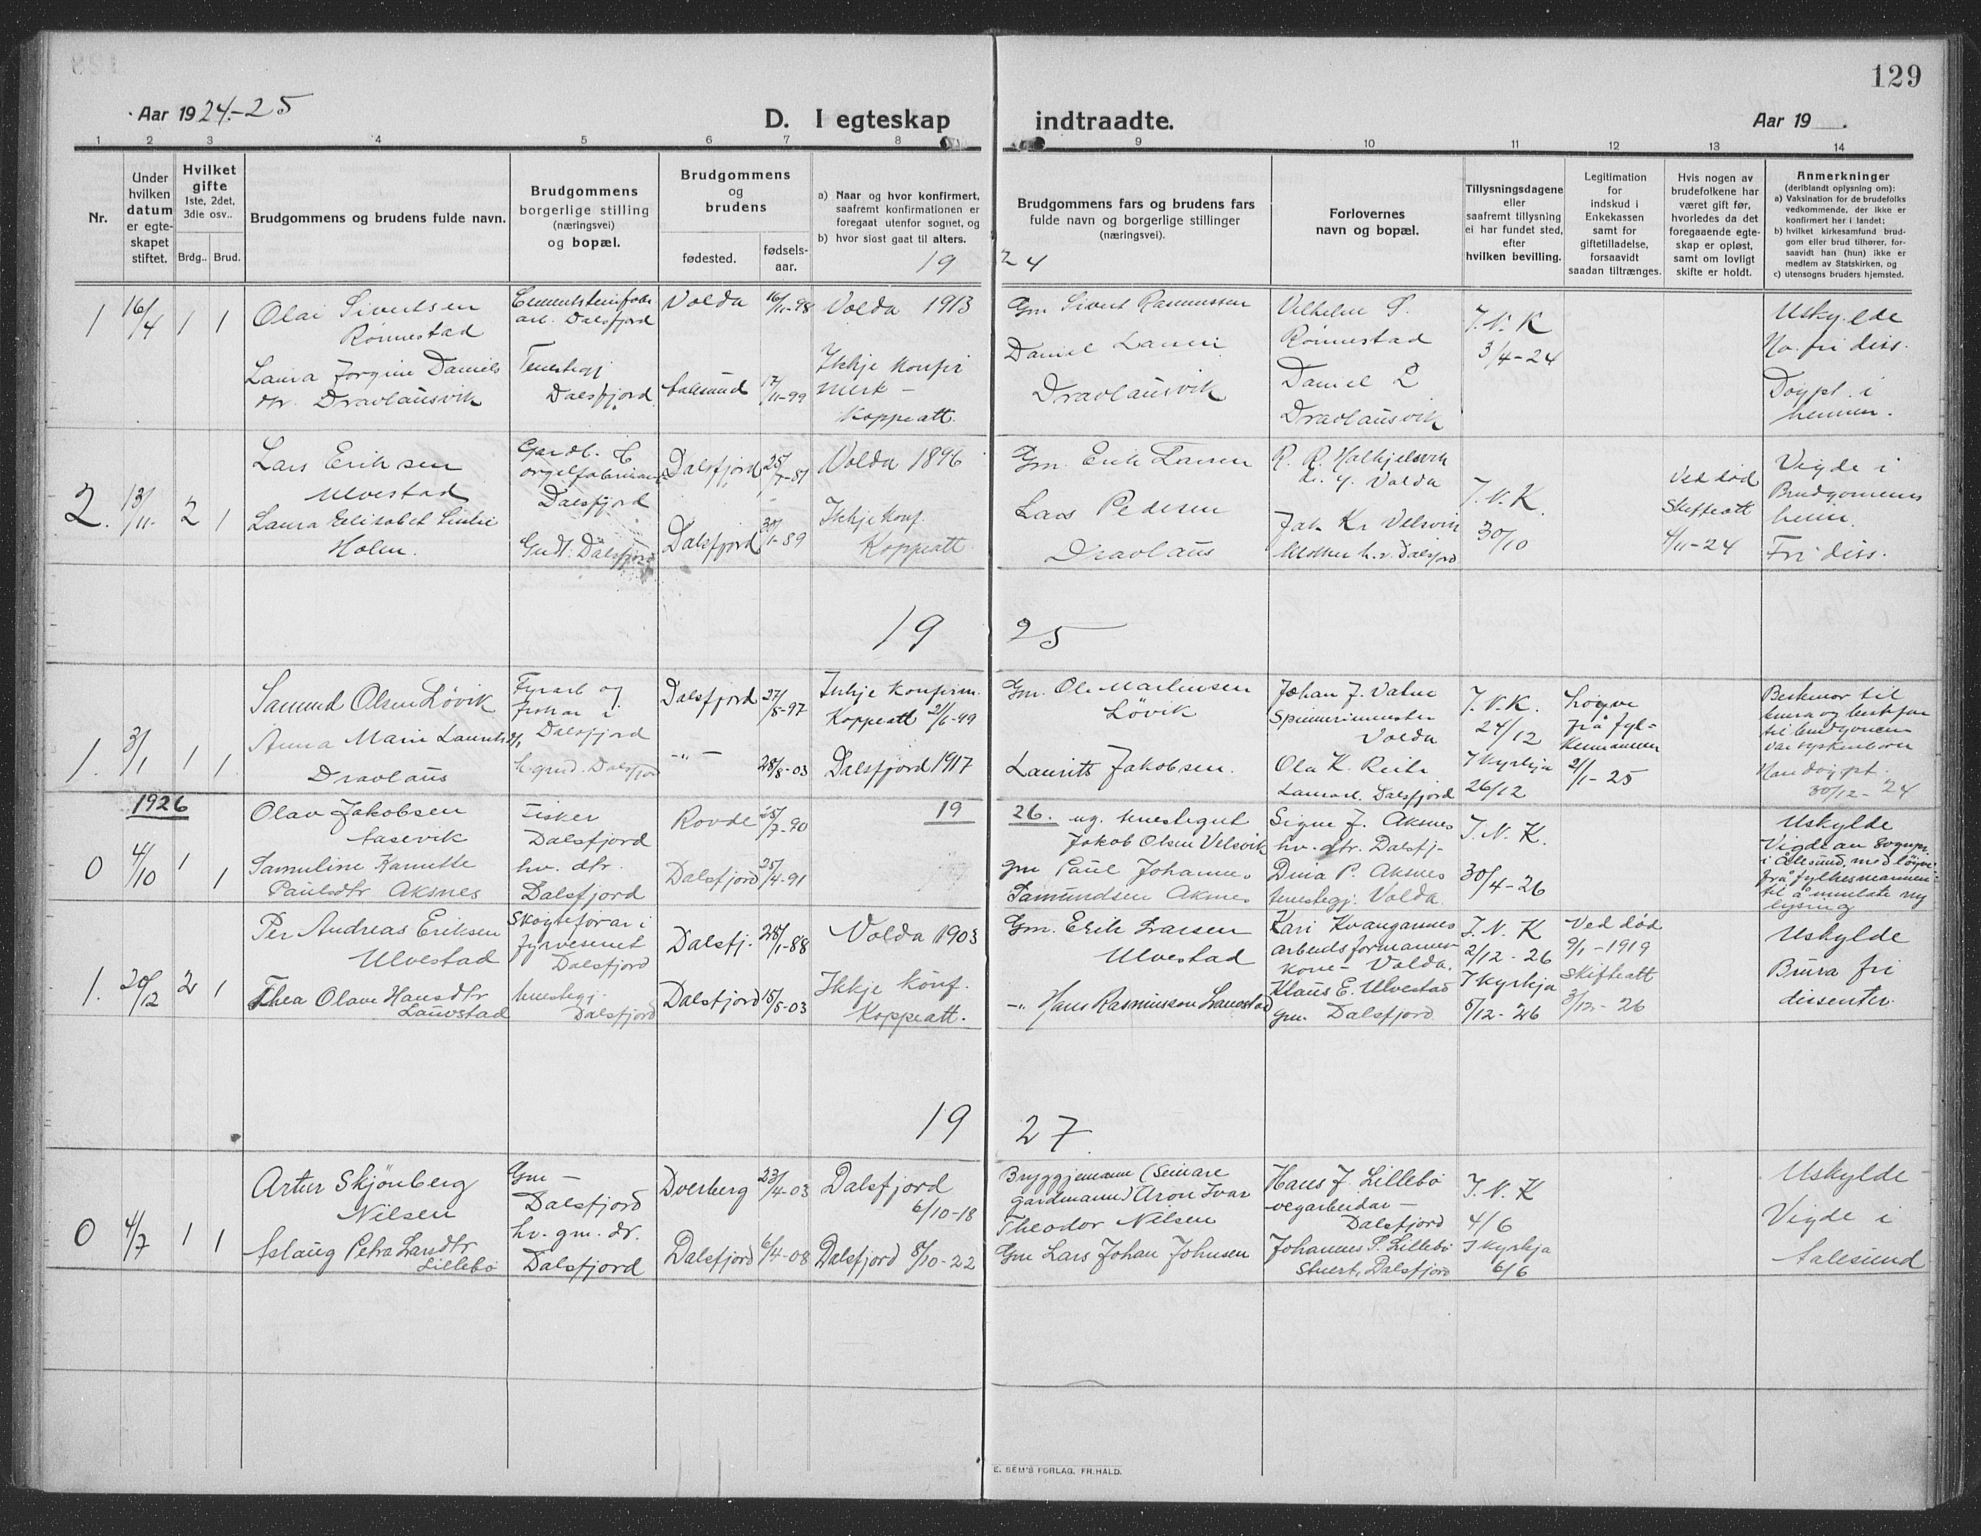 129
Aar 1924.-25
D. I egteskap indtraadte.
Aar 19 .
1 2 3 4 5 6 7 8 9 10 11 12 13 14
Nr.
Under hvilken datum er egte-skapet stiftet.
Hvilket gifte 1ste, 2det, 3die osv..
Brdg.. Brud.
Brudgommens og brudens fulde navn.
Brudgommens borgerlige stilling (næringsvei) og bopæl.
Brudgommens og brudens
fødested.
fødsels-aar.
a) Naar og hvor konfirmert, saafremt konfirmationen er foregaat utenfor sognet, og
b) hvor sidst gaat til alters.
Brudgommens fars og brudens fars fulde navn og borgerlige stillinger (næringsvei).
Forlovernes navn og bopæl.
Tillysningsdagene eller saafremt tillysning ei har fundet sted, efter hvilken bevilling.
Legitimation for indskud i Enkekassen samt for giftetilladelse, forsaavidt saadan tiltrænges.
Hvis nogen av brudefolkene har været gift før, hvorledes da det foregaaende egte-skap er opløst, samt om lovligt skifte er holdt.
Anmerkninger (deriblandt oplysning om):
a) Vaksination for de brudefolks vedkommende, der ikke er konfirmert her i landet;
b) hvilket kirkesamfund brud-gom eller brud tilhører, for-saavidt han (hun) ikke er medlem av Statskirken, og
c) utensogns bruders hjemsted.
19 24
1 16/4 1 1
Olai Sivertsen
Rønnestad
Laura Jorgine Daniels
dtr. Dravlausvik
arb. Dalsfjord
Dalsfjord
Volda 16/11-98
Aalesund 17/11-99
Volda 1913
Ikkje Konfir
mert -
Koppeatt.
Gm Sivert Rasmussen
Daniel Larsen
Dravlausvik
Vilhelm S.
Rønnestad
Daniel L
Dravlausvik
I. N. K
3/4-24
Uskylde
Ho. fri diss.
Døypt i
heimen.
2. 13/11- 2 1
Lars Eriksen
Ulvestad
Laura Elisabet
Holm.
Gardb. &
Dalsfjord
Dalsfjord
Dalsfjord 25/7-81
Dalsfjord 30/1-89
Volda 1896
Ikkje Konf.
Koppeatt.
Gm. Erik Larsen
Lars Pedersen
Dravlaus
R. R. Halkjelsvik
Volda
Jak Kr Velsvik
Dalsfjord
I. N. K.
30/10
Ved død
Skifteatt
4/11-24
Vigde i
Brudgomens
heim.
Fri diss.
19 25
1. 3/1 1 1
Samund Olsen Løvik
Anna Marie Laurits
Dravlaus
Fyrarb og
fiskar i
Dalsfjord
Dalsfjord
Dalsfjord 27/8-97
-"- 28/8-03
Ikkje Konfirm.
Koppeatt 21/6-99
Dalsfjord 1917
Gm. Ole Martinsen
Løvik
Laurits Jakobsen.
Johan J. Vatne
Spinnerimeister
Volda
Ola K. Reite
Dalsfjord
I. N. K.
24/12
I kyrkja
26/12
Løyve
frå fyl-
kesmannen
2/1-25
Bestemor til
brura og bestefar
til brudgomen
var syskenborn
Han døypt.
30/12-24
1926
19 26.
0 4/10 1 1
Olav Jakobsen
Aasevik
Samuline Kanutte
Paulsdtr Aksnes
Fisker
Dalsfjord
hv. dtr.
Dalsfjord
Rovde 25/7-90
Dalsfjord 25/4-91
ug. tenestegut
Jakob Olsen Velsvik
Gm Paul Johannes
Samundsen Aksnes
Signe J. Aksnes
hv. dtr. Dalsfj-
Dina P. Aksnes
tenestegj. Volda.
I. N. K.
30/4-26
Uskylde
i Ålesund, med løyve
frå fylkesmannen
til å unnlate ny
lysing
1. 20/12 2 1
Per Andreas Eriksen
Ulvestad
Thea Olave Hansdtr
Lauvstad
Skøyteførar i
fyrvesenet
Dalsfjord
tenestegj.
Dalsfjord
Dalsfj. 28/1-88
Dalsfjord 15/8-03
Volda 1903
Ikkje konf.
Koppeatt.
Gm. Erik Larsen
Ulvestad
-"- Hans Rasmussen Lauvstad
Kari Kvangarsnes
arbeidsformanns-
kone - Volda.
Klaus E. Ulvestad
gm. Dalsfjord
I. N. K
2/12-26
I kyrkja
5/12-26
Ved død
9/1-1919
Skifteatt
3/12-26
Uskylde
Brura fri
dissenter.
19 27
0 4/7 1 1
Artur Skjønberg
Nilsen
Aslaug Petra Larsdtr
Lillebø
Gm -
Dalsfjord
hv. gm. dr.
Dalsfjord
Dverberg 23/4-03
Dalsfjord 6/4-08
Dalsfjord
6/10-18
Dalsfjord 8/10-22
Bryggjemann (Seinare
gardmann) Aron Ivar
Theodor Nilsen
Gm Lars Johan Johnsen
Hans J. Lillebø
vegarbeidar -
Dalsfjord
Johannes P. Lillebø
Dalsfjord
I. N. K
4/6
I kyrkja
6/6
Uskylde
Vigde i
Aalesund
E. SEM'S FORLAG, FR.HALD.